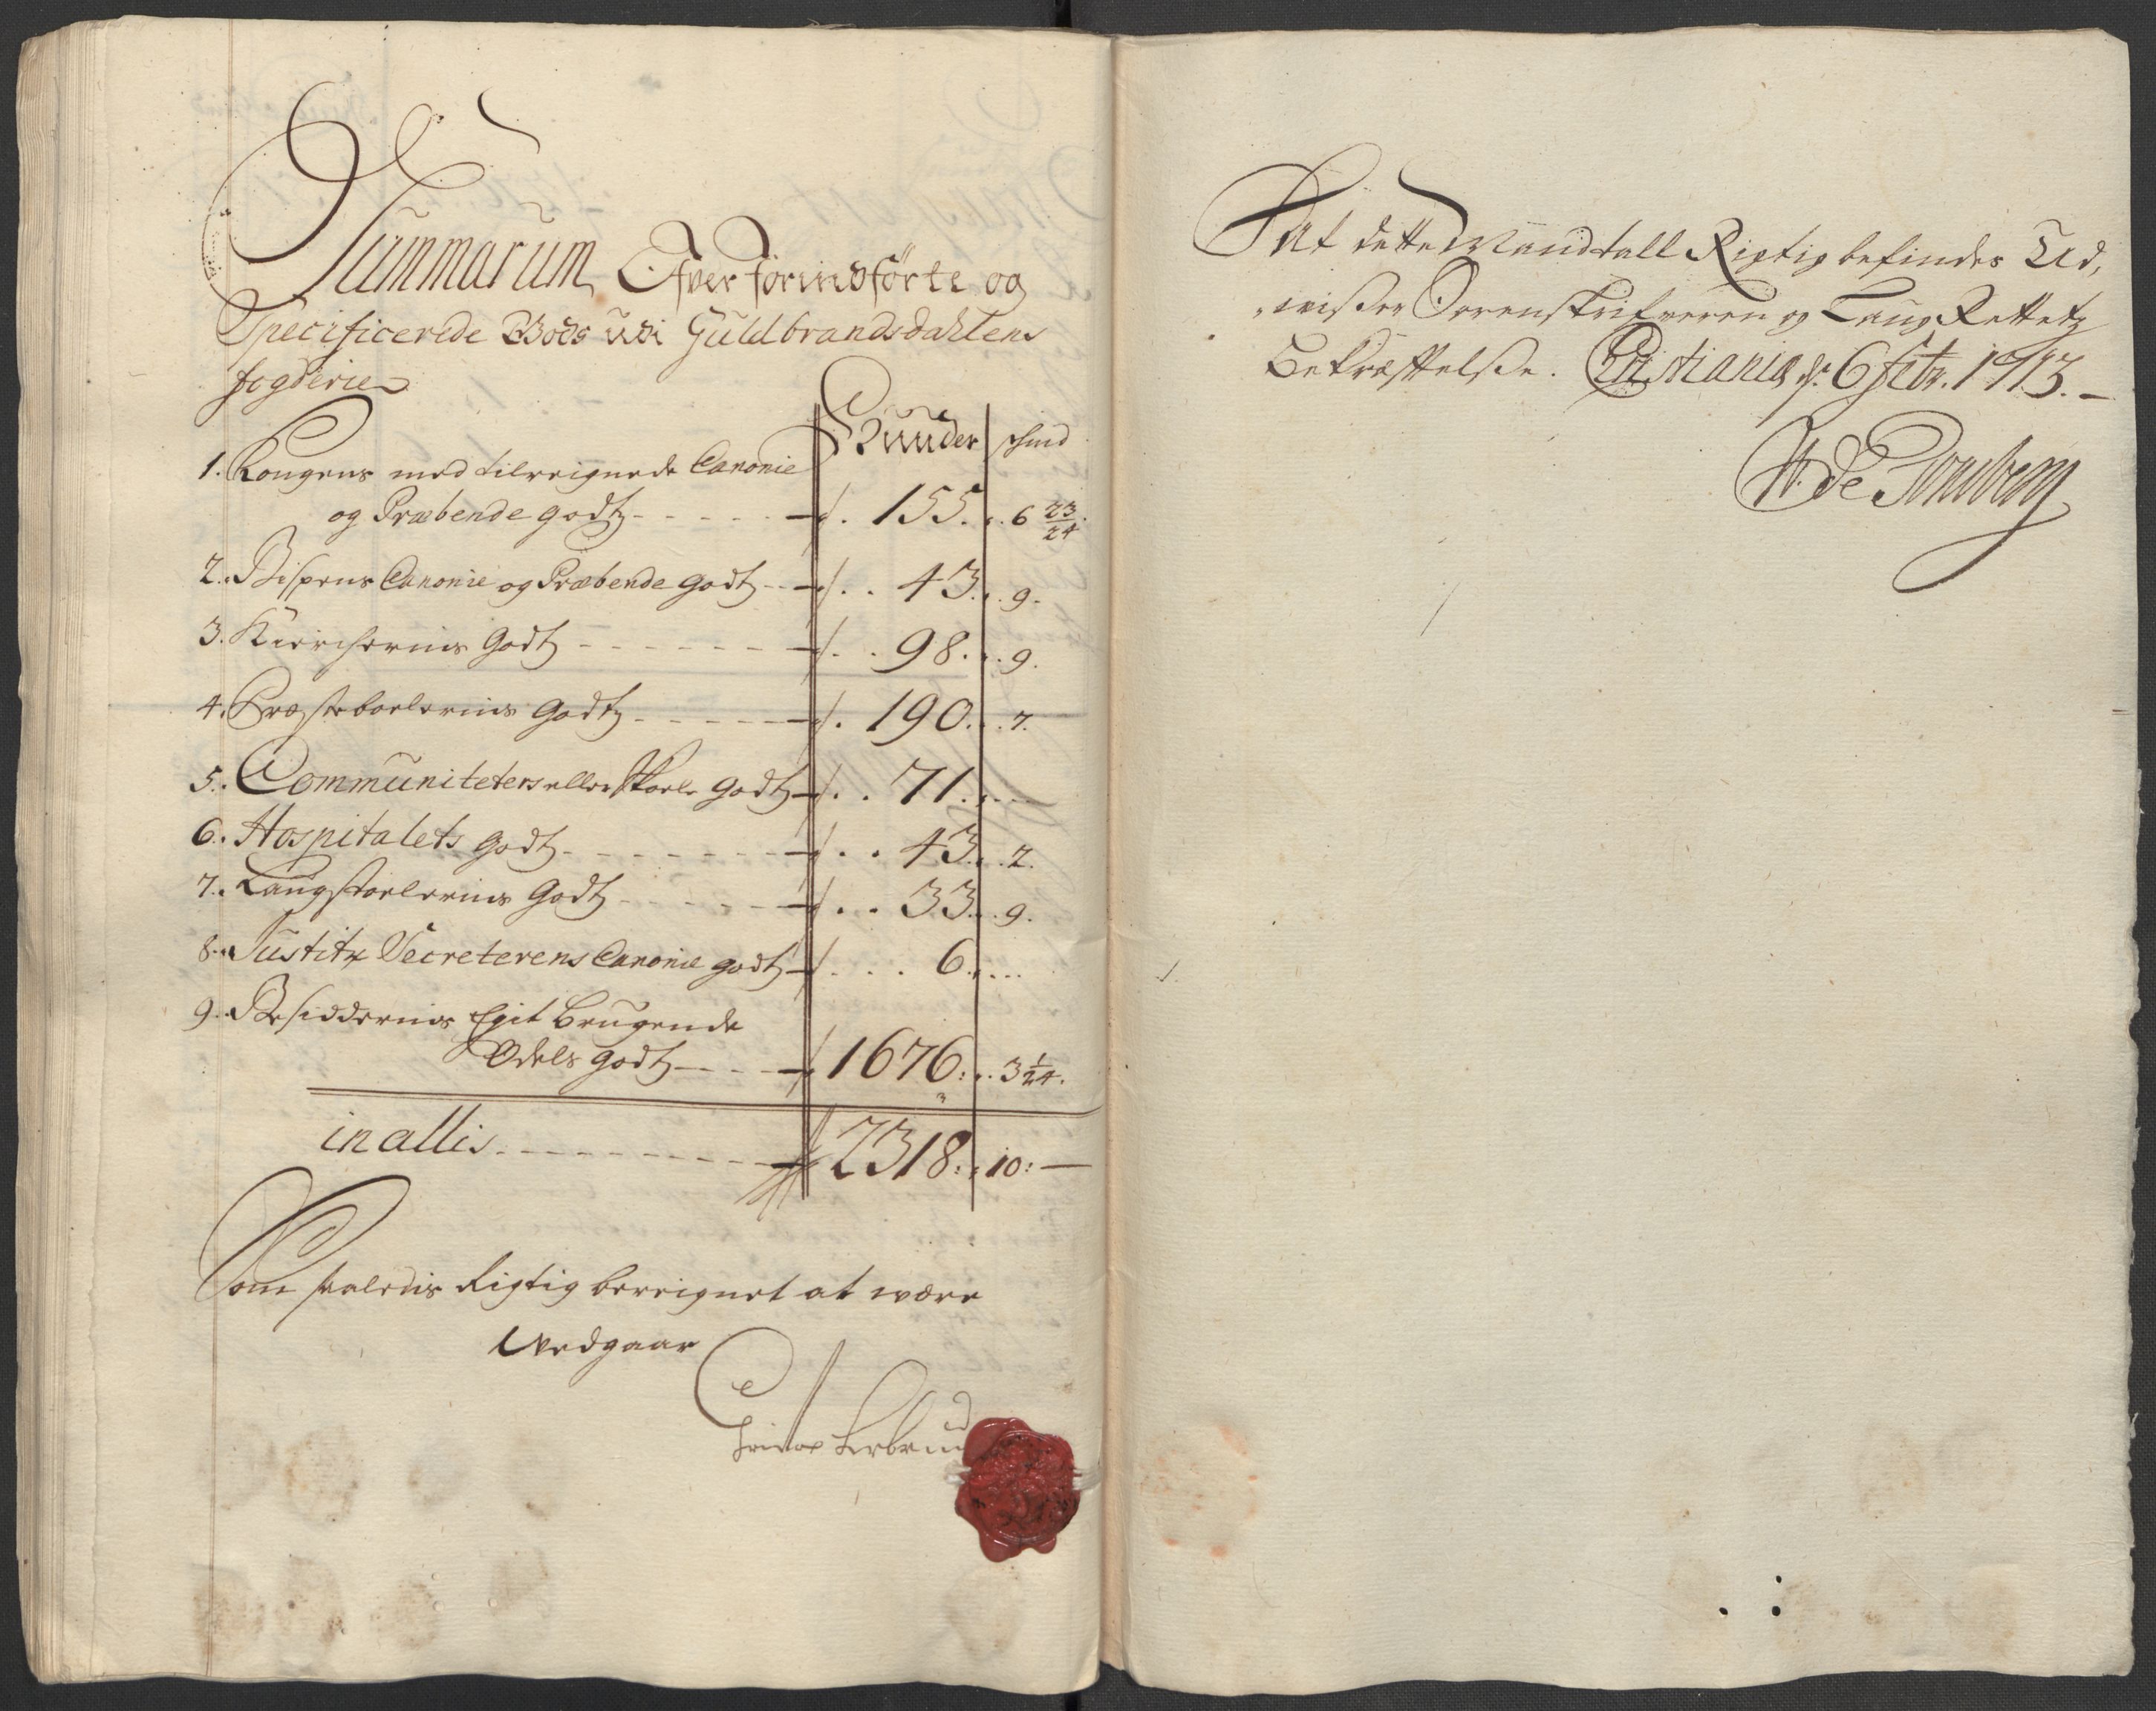 Summarum Ofver forindførte og
Specificerede Gods udi Guldbrandsdahlens
fogderie
Hunder Skind
1. Kongens med tilreignede Canonie
og Præbende godtz - - - - - 155. 6 23/24
2. Bispens Canonie og Præbende godtz - - 43. 9.
3. Kierchernis Godtz - - - - - - 98. 9.
4. Præsteboelernis Godtz - - - - - 190. 7.
5. Communitetets eller Skoele godtz 71. ...
6. Hospitalets godtz - - - - - - 43. 2.
7. Laugstoelernis Godtz - - - - - 33. 9.
8. Justitz Secreterens Canonie godtz 6. ...
9. Besiddernis Egit Brugende
Odels godtz - - - 1676: 3 1/24.
in allis - - - - - - - - 2318: 10: —
Som saaledis Rigtig bereignet at være
Vedgaar
At dette Mandtall Rigtig befindes Ud,
viser Sorenskrifveren og Laug Rettetz
Bekræftelse. Christiania d. 6 Febr. 1713. —